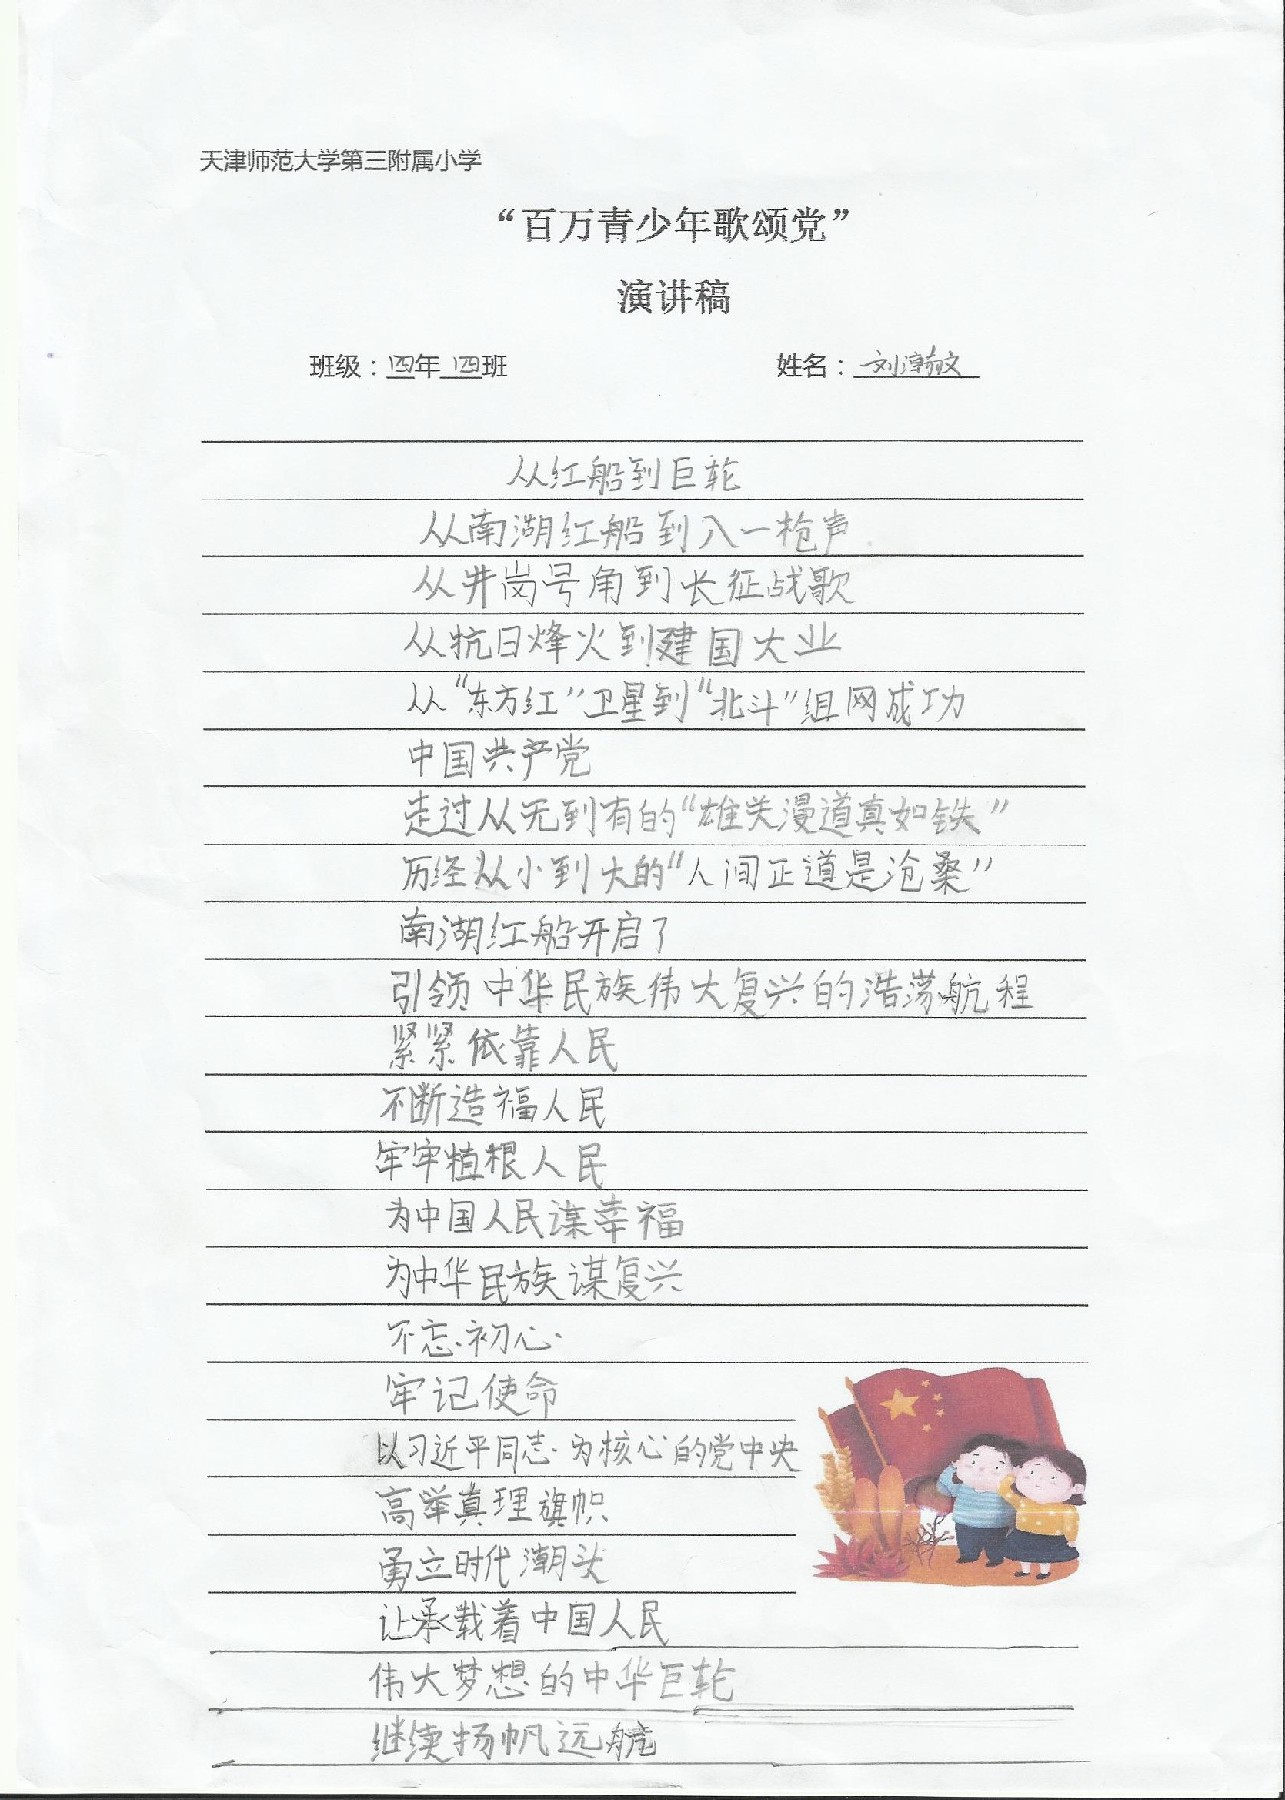 天津师范大学第三附属小学
“百万青少年歌颂党”
演讲稿
班级：四年 四班 姓名：刘瀚文
从红船到巨轮
从南湖红船到八一枪声
从井岗号角到长征战歌
从抗日烽火到建国大业
从“东方红”卫星到“北斗”组网成功
中国共产党
走过从无到有的“雄关漫道真如铁”
历经从小到大的“人间正道是沧桑”
南湖红船开启了
引领中华民族伟大复兴的浩荡航程
紧紧依靠人民
不断造福人民
牢牢植根人民
为中国人民谋幸福
为中华民族谋复兴
不忘初心
牢记使命
以习近平同志为核心的党中央
高举真理旗帜
勇立时代潮头
让承载着中国人民
伟大梦想的中华巨轮
继续扬帆远航